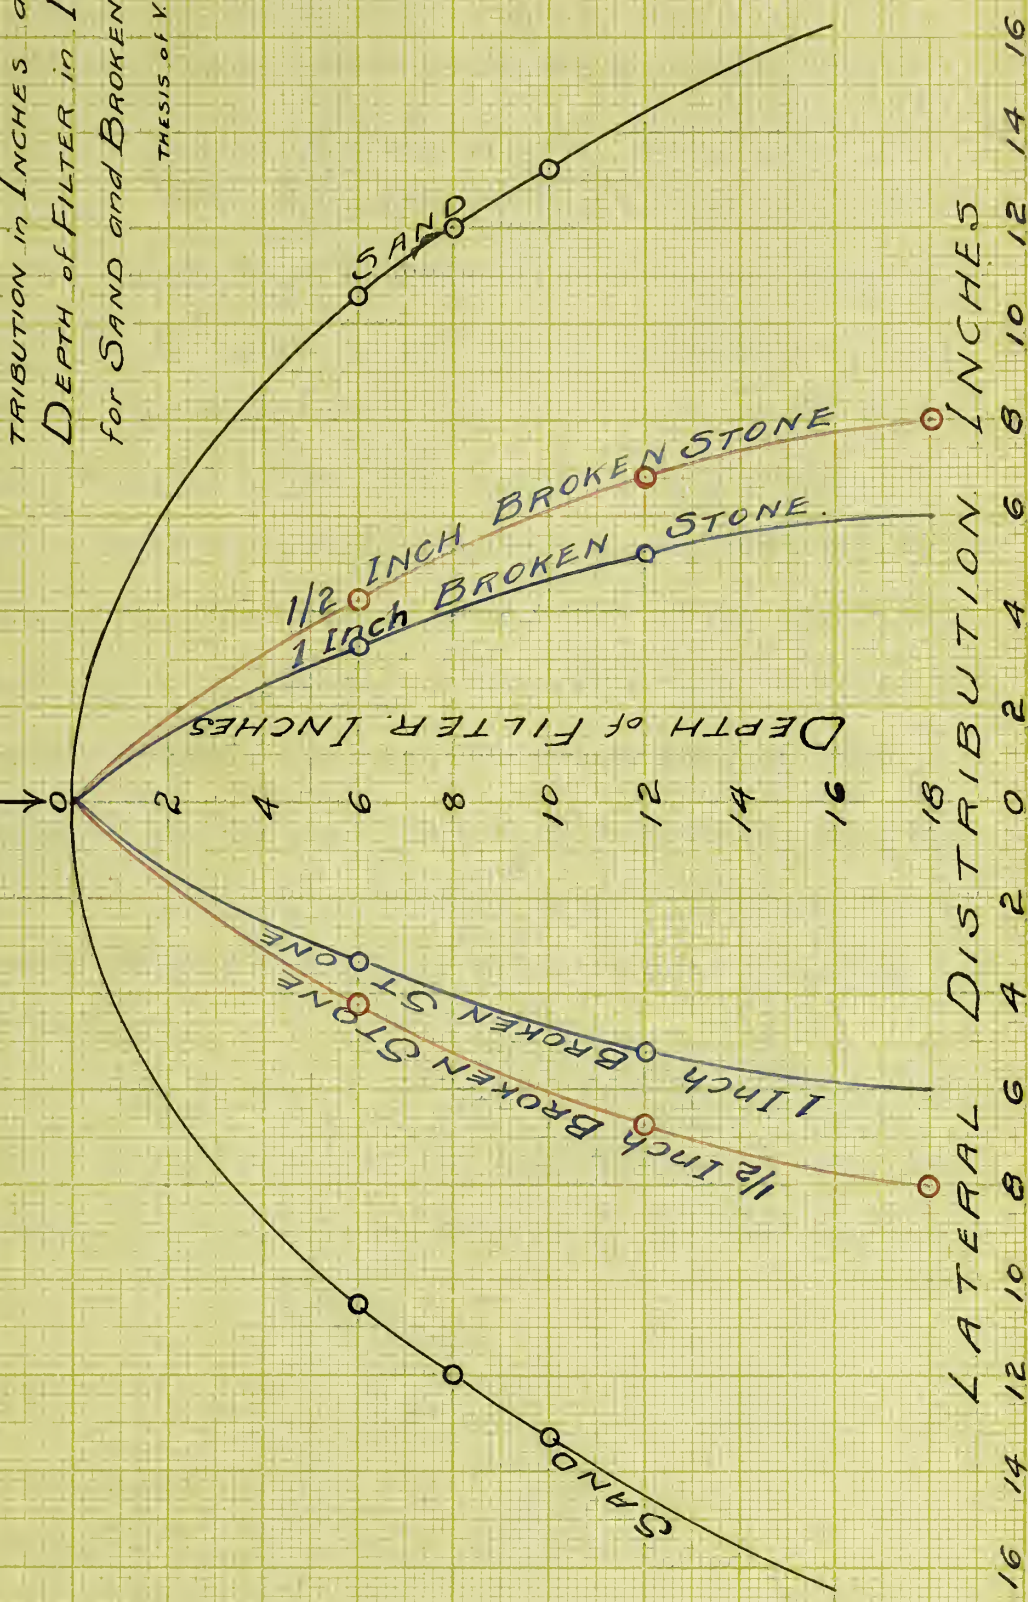 TRIBUTION in INCHES
DEPTH of FILTER in
for SAND and BROKEN
THESIS of V.
SAND
1/2 INCH BROKEN STONE
1 Inch BROKEN STONE.
DEPTH of FILTER INCHES
0
2
4
6
8
10
12
14
16
18
1 Inch BROKEN STONE
1/2 Inch BROKEN STONE
SAND
LATERAL DISTRIBUTION INCHES
16 14 12 10 8 6 4 2 0 2 4 6 8 10 12 14 16